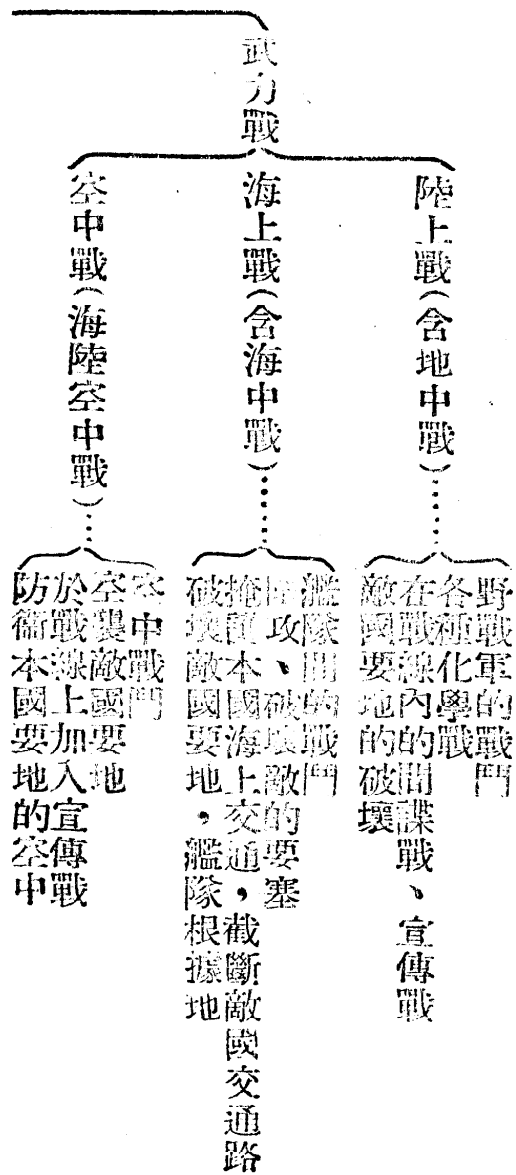 武力戰
陸上戰(含地中戰)……
野戰軍的戰鬥
各種化學戰
在戰線內的間諜戰、宣傳戰
敵國要地的破壞
海上戰(含海中戰)……
艦隊間的戰鬥
攻、破壞敵的要塞
掩護本國海上交通,截斷敵國交通路
破壞敵國要地,艦隊根據地
空中戰(海陸空中戰)……
空中戰鬥
空襲敵國要地
於戰線上加入宣傳戰
防衞本國要地的空中